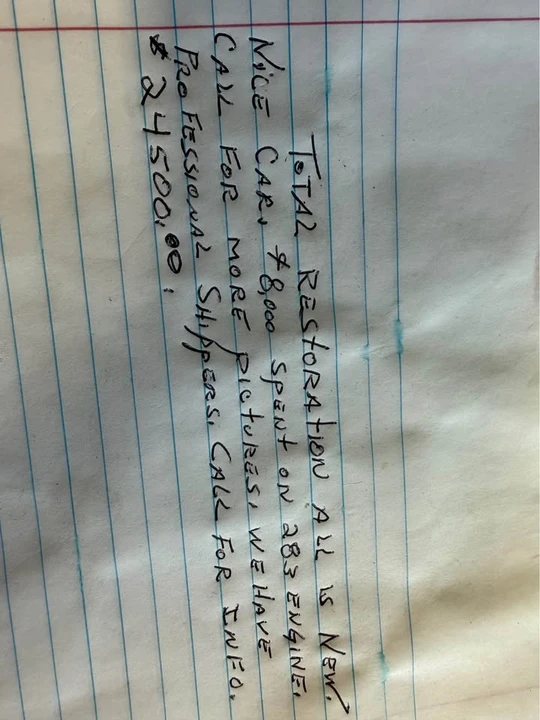 TOTAL RESTORATION ALL IS NEW.
NICE CAR. $8,000 SPENT ON 283 ENGINE.
CALL FOR MORE PICTURES. WE HAVE
PROFESSIONAL SHIPPERS. CALL FOR INFO.
$24500.00.